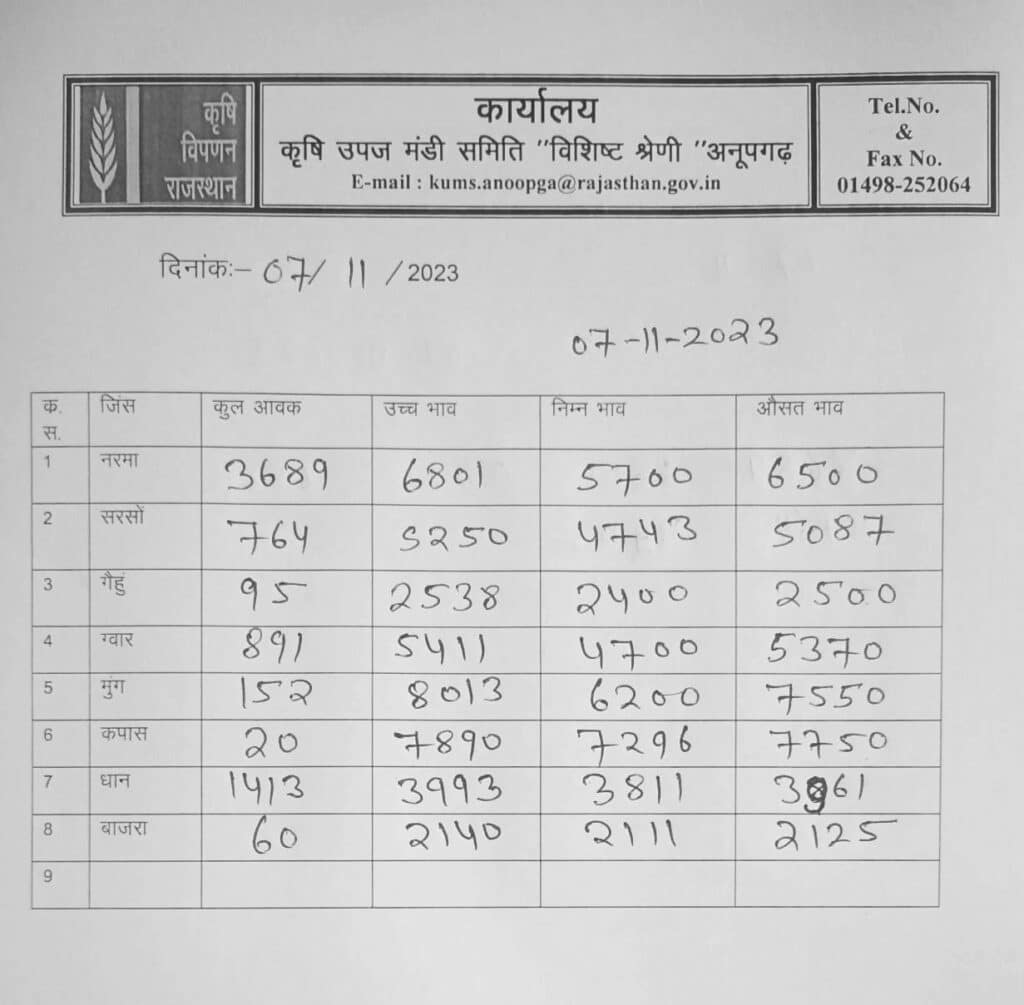 कृषि
विपणन
राजस्थान
कार्यालय
कृषि उपज मंडी समिति "विशिष्ट श्रेणी "अनूपगढ़
E-mail : kums.anoopga@rajasthan.gov.in
Tel.No.
&
Fax No.
01498-252064
दिनांकः- 07/ 11 /2023
07-11-2023
क. स. जिंस कुल आवक उच्च भाव निम्न भाव औसत भाव
1 नरमा 3689 6801 5700 6500
2 सरसों 764 5250 4743 5087
3 गैहुं 95 2538 2400 2500
4 ग्वार 891 5411 4700 5370
5 मुंग 152 8013 6200 7550
6 कपास 20 7890 7296 7750
7 धान 1413 3993 3811
8 बाजरा 60 2140 2111 2125
9